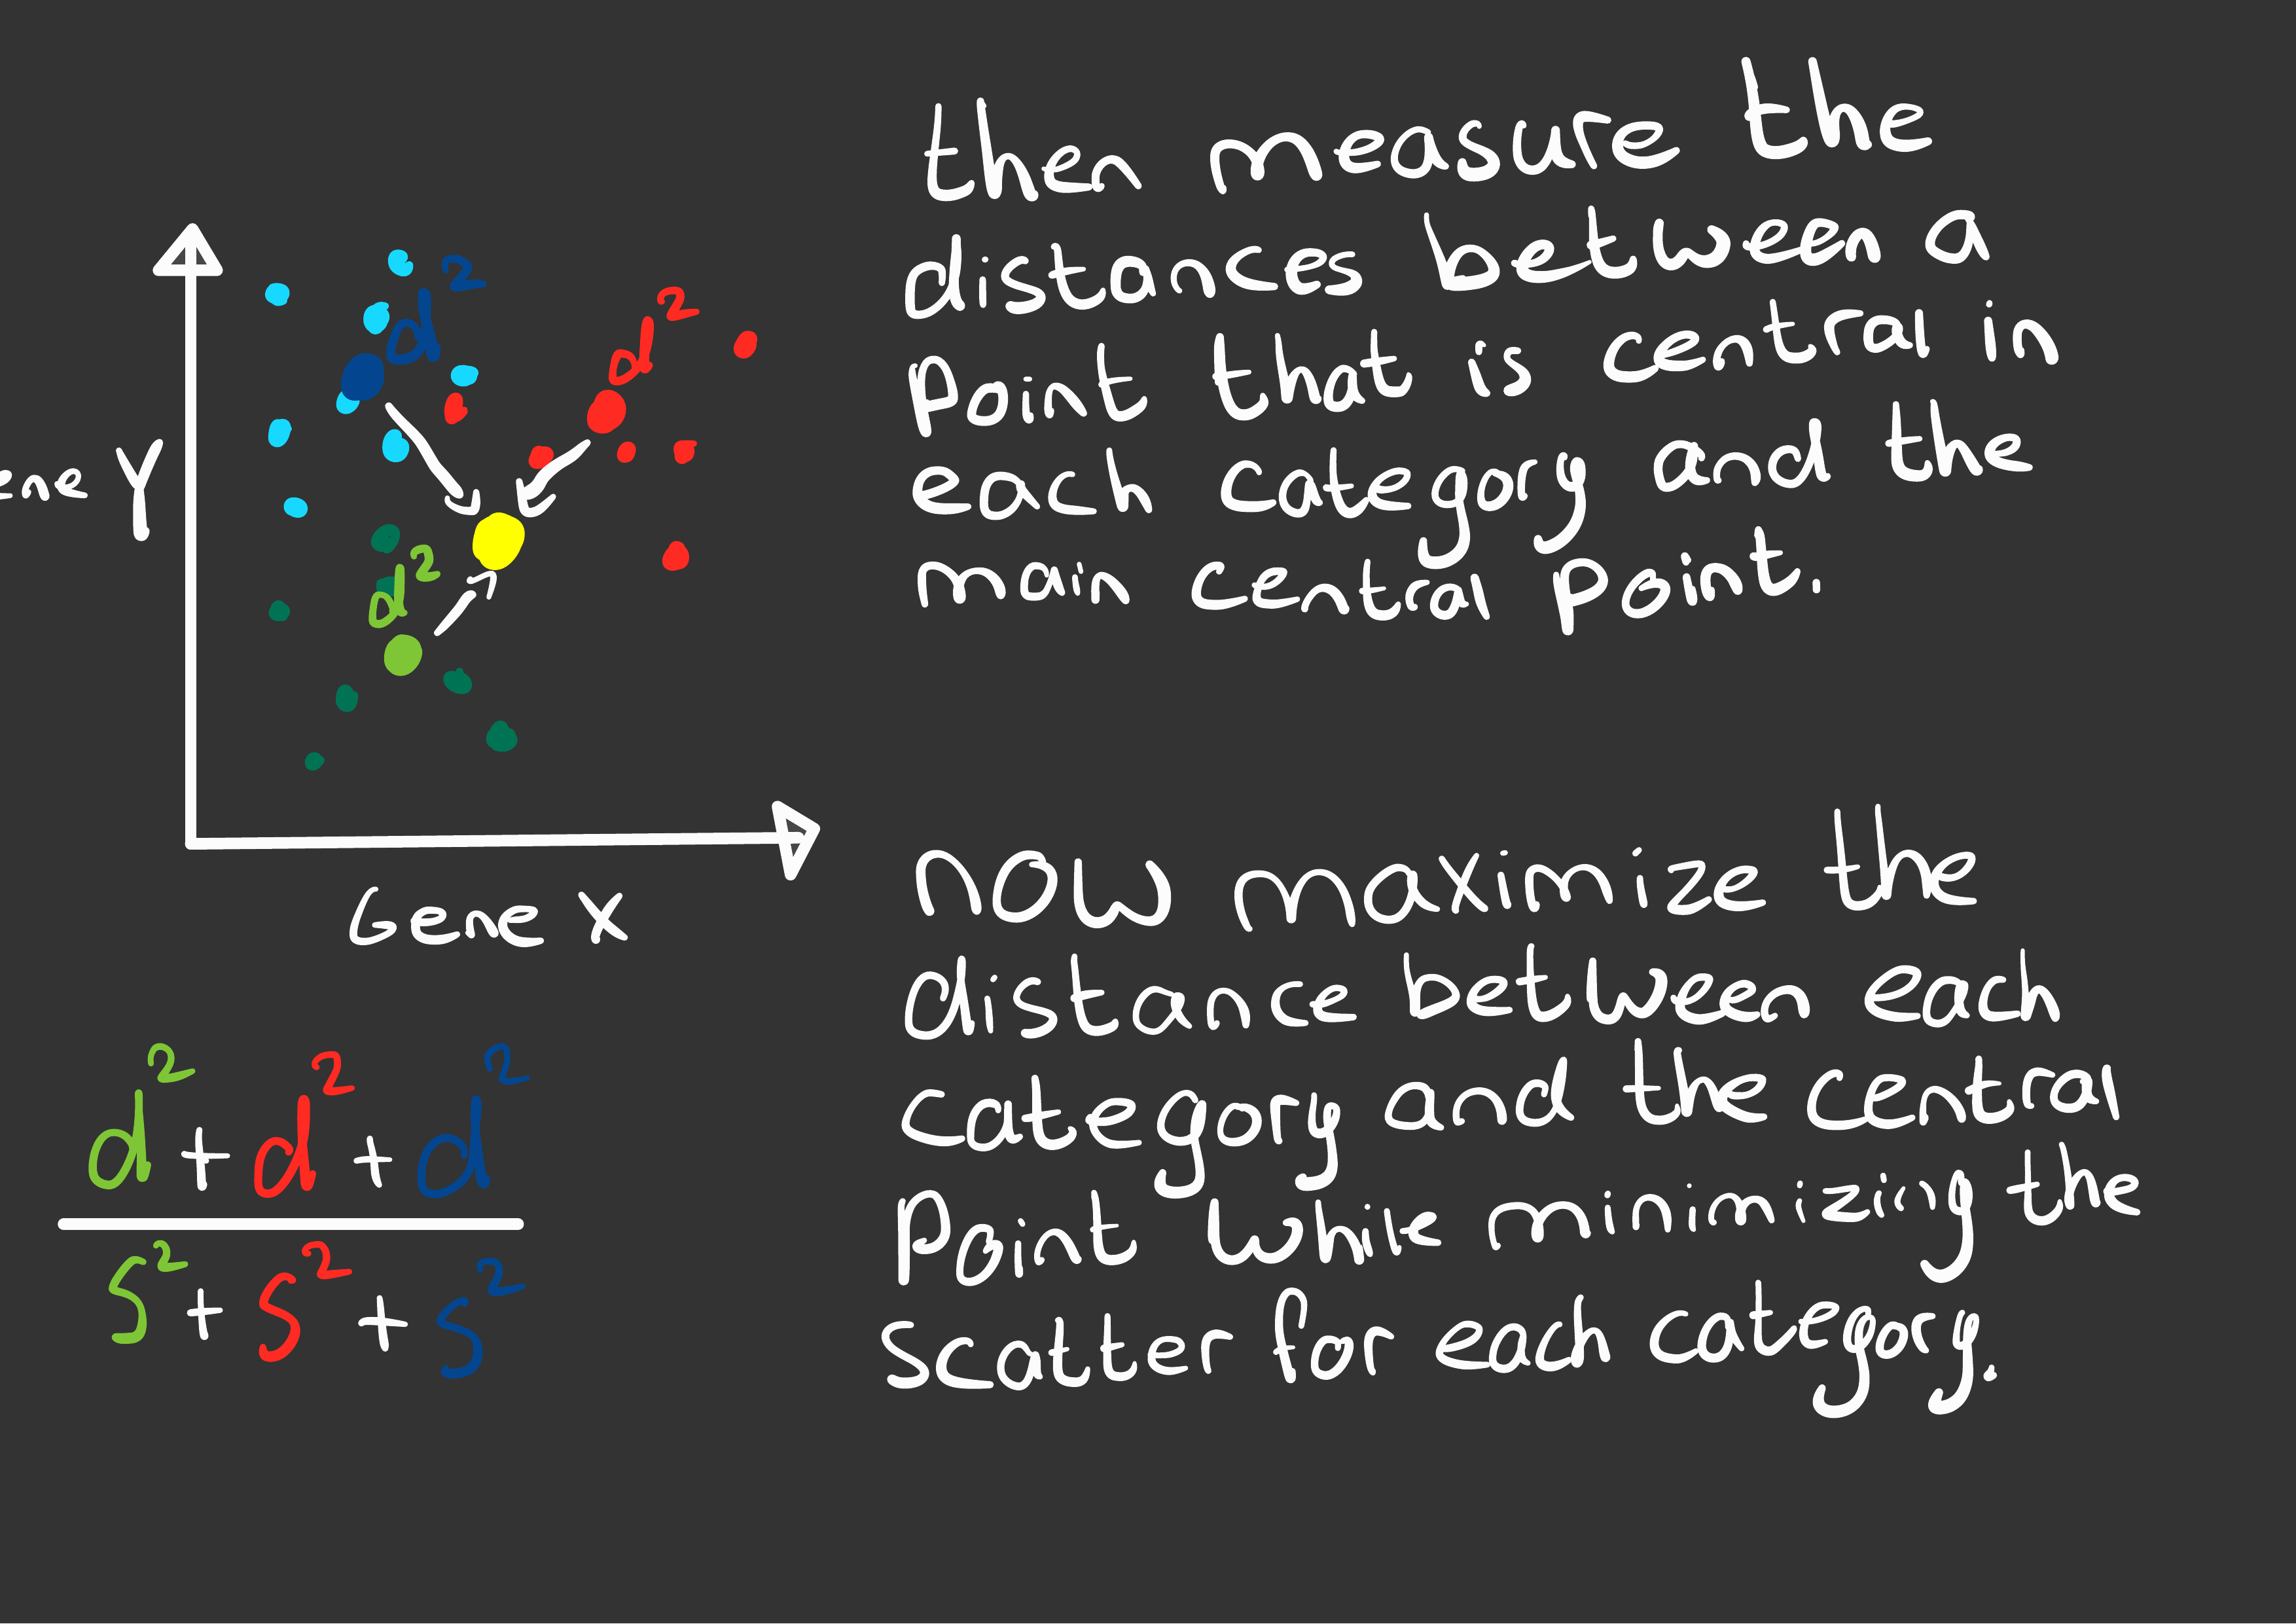 then measure the
distances between a
point that is central in
each category and the
main central point.
d²
d²
d²
Y
Gene X
now maximize the
distance between each
category and the central
point while minimizing the
scatter for each category.
d² + d² + d²
s² + s² + s²